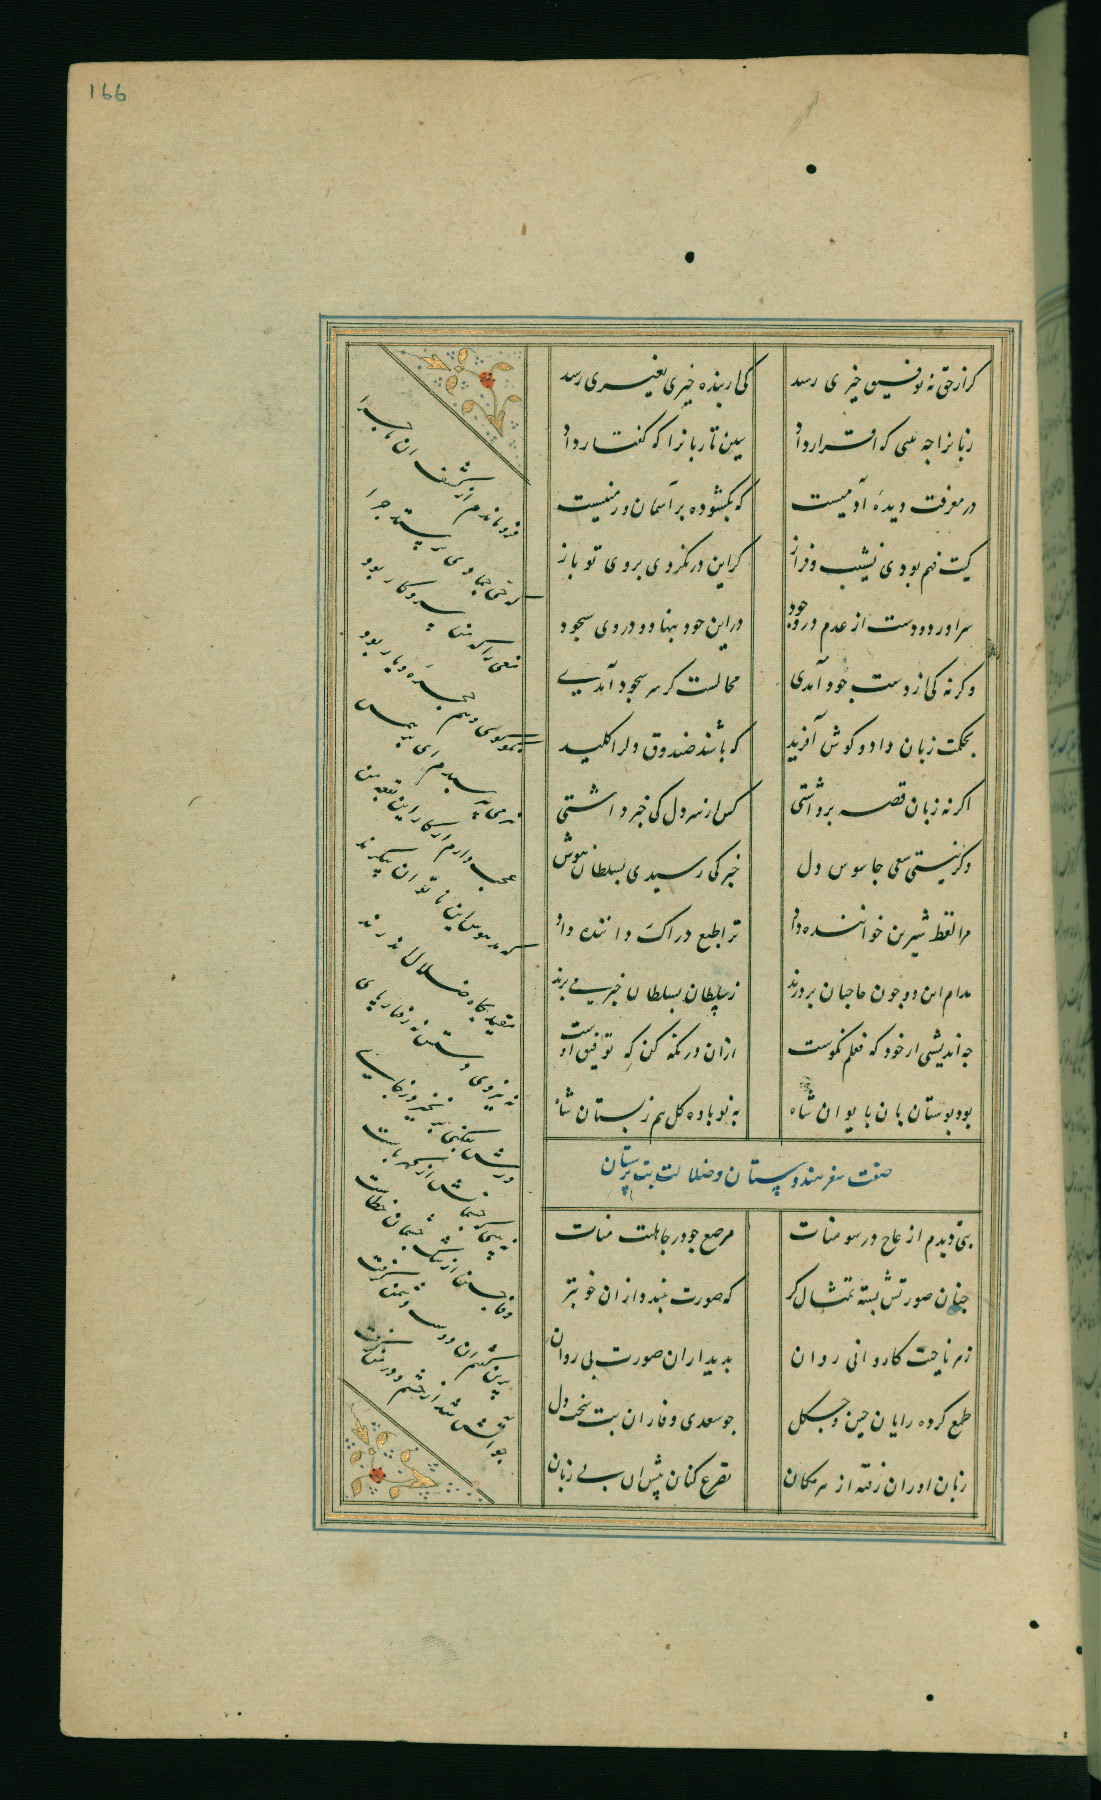 166
گر از حق نه توفیق خیری رسد کی از بنده خیری بغیری رسد
زبانرا چه بینی که اقرار داد ببین تا زبانرا که گفتار داد
در معرفت دیده آدمیست که بگشوده بر آسمان و زمینست
کیت فهم بودی نشیب و فراز گر این در نکردی بروی تو باز
سر آورد و دست از عدم در وجود در این جود بنهاد و در وی سجود
وگرنه کی از دست جود آمدی محالست کز سر سجود آمدی
بحکمت زبان داد و گوش آفرید که باشند صندوق دلرا کلید
اگر نه زبان قصه برداشتی کس از سر دل کی خبر داشتی
وگر نیستی سعی جاسوس دل خبر کی رسیدی بسلطان هوش
مرا لفظ شیرین خواننده داد ترا طبع دراک داننده داد
مدام این دو چون حاجبان بر درند ز سلطان بسلطان خبر می برند
چه اندیشی از خود که فعلم نکوست از آن در نگه کن که توفیق اوست
برد بوستان بان بایوان شاه به نوباوه گل هم ز بستان شاه
صفت سفر هندوستان و ضلالت بت پرستان
بتی دیدم از عاج در سومنات مرصع چو در جاهلیت منات
چنان صورتش بسته تمثال گر که صورت نبندد از آن خوبتر
ز هر ناحیت کاروانی روان بدیدار آن صورت بی روان
طمع کرده رایان چین و چگل چو سعدی وفا زان بت سخت دل
زبان آوران رفته از هر مکان تضرع کنان پیش آن بی زبان
فرو ماندم از کشف آن ماجرا
که حی جمادی پرستد چرا
مغی را که با من سر و کار بود
نکوگوی و هم حجره و یار بود
بنرمی بپرسیدم ای برهمن
عجب دارم از کار این بقعه من
که مدهوش این ناتوان پیکرند
مقید بچاه ضلال اندرند
نه نیروی دستش نه رفتار پای
ورش بفکنی بر نخیزد ز جای
نه بینی که چشمانش از کهرباست
وفا جستن از سنگ چشمان خطاست
برین گفتم آن دوست دشمن گرفت
چو آتش شد از خشم و در من گرفت